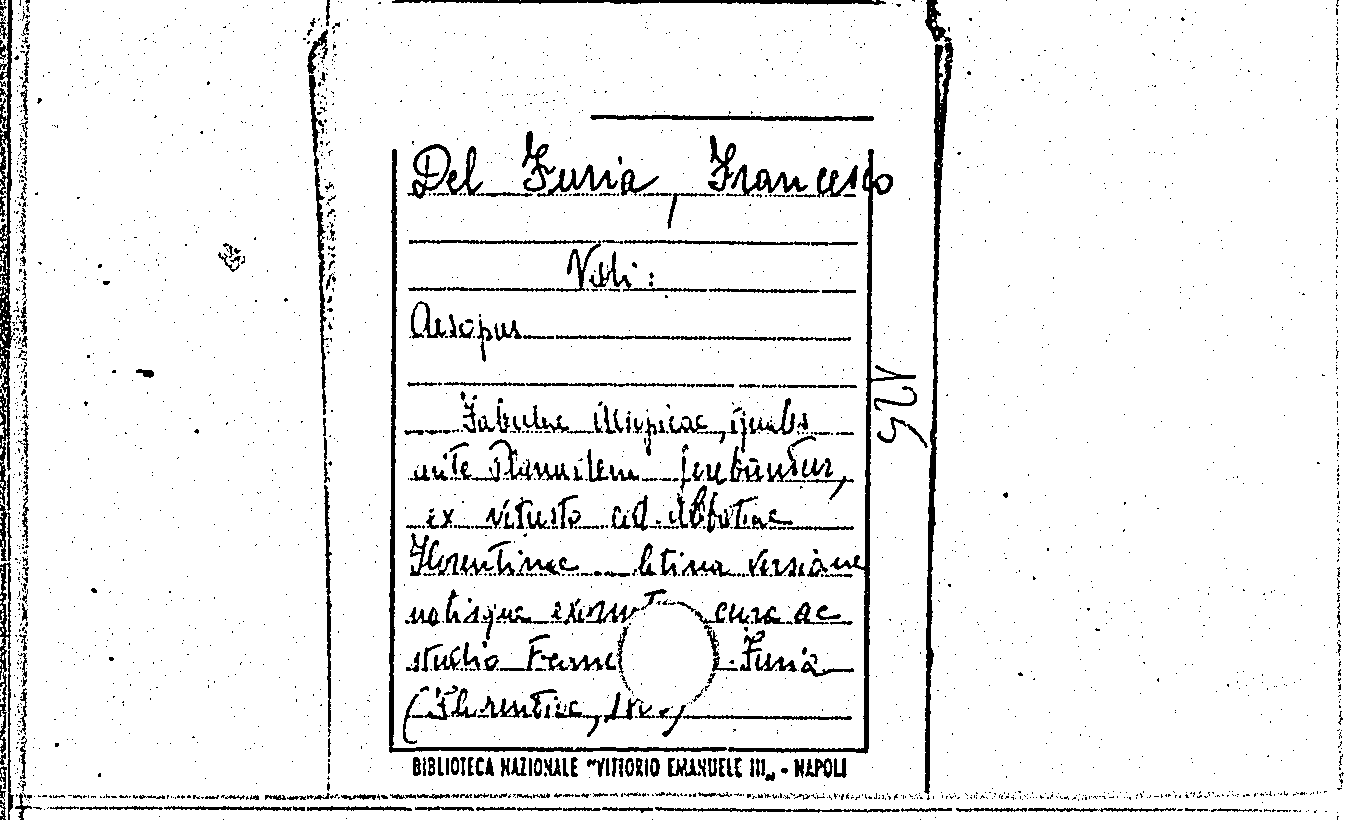 Del Furia, Francesco
Vedi:
Aesopus
Fabulae Aesopicae, quales
ante Planudem ferebantur,
ex vetusto cod. Abbatiae
Florentinae latina versione
notisque exornat cura ac
studio Franc Furia
(Florentiae, 18
BIBLIOTECA NAZIONALE "VITTORIO EMANUELE III„ - NAPOLI